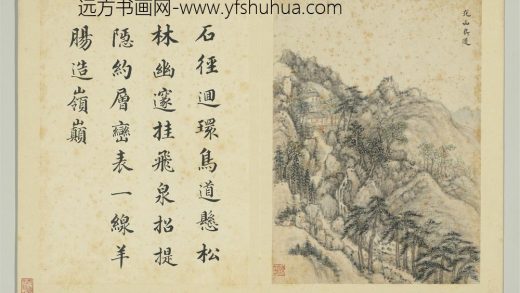 远方书画网-www.yfshuhua.com
石徑迴環鳥道懸松
林幽邃挂飛泉招提
隱約層巒表一線羊
腸造嶺巔